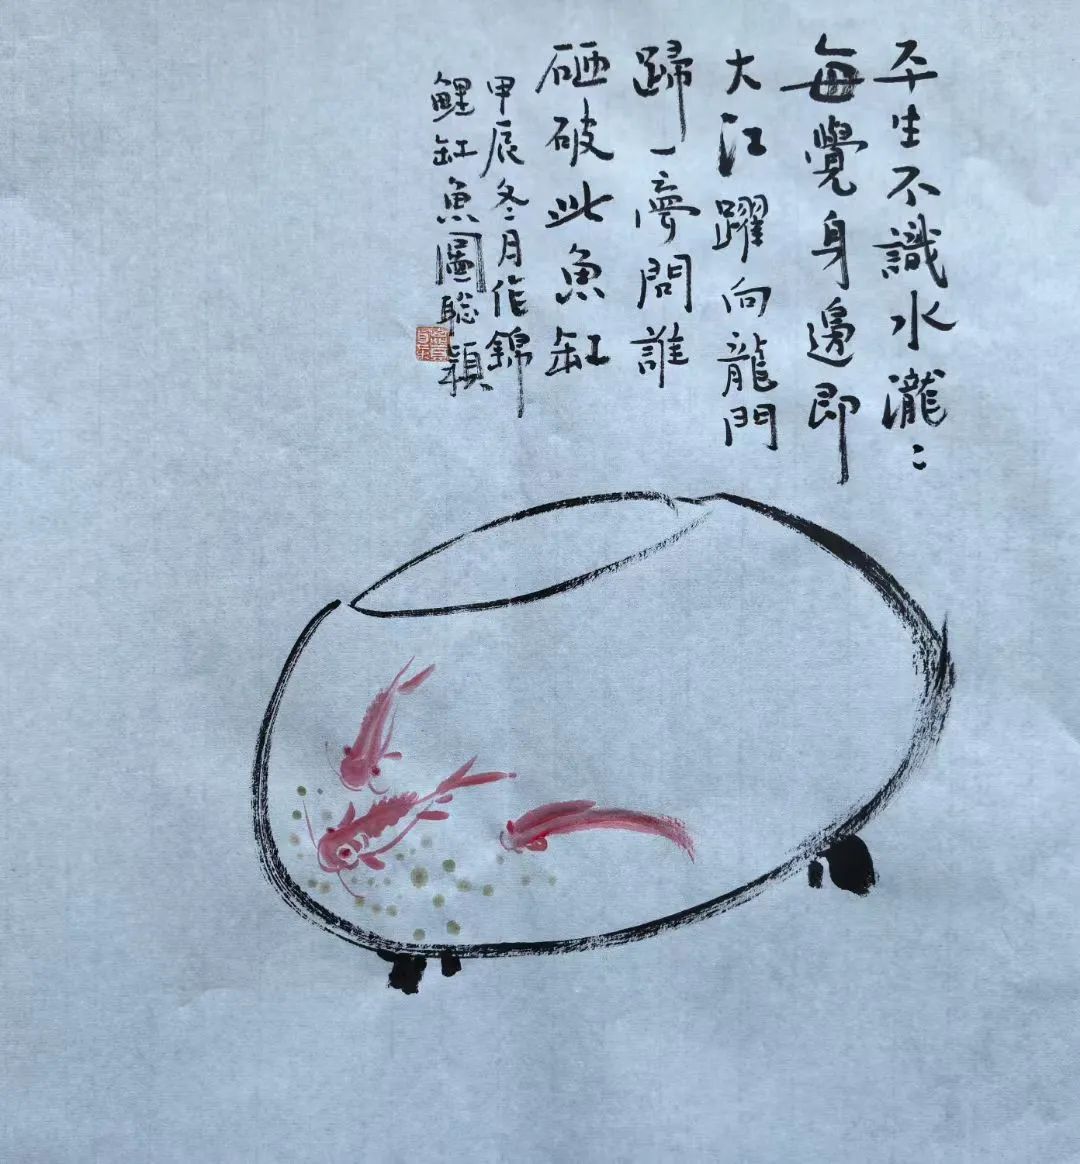 平生不識水瀧〻
每覺身邊即
大江躍向龍門
歸一夢問誰
砸破此魚缸
甲辰冬月作錦
鯉缸魚圖聪穎